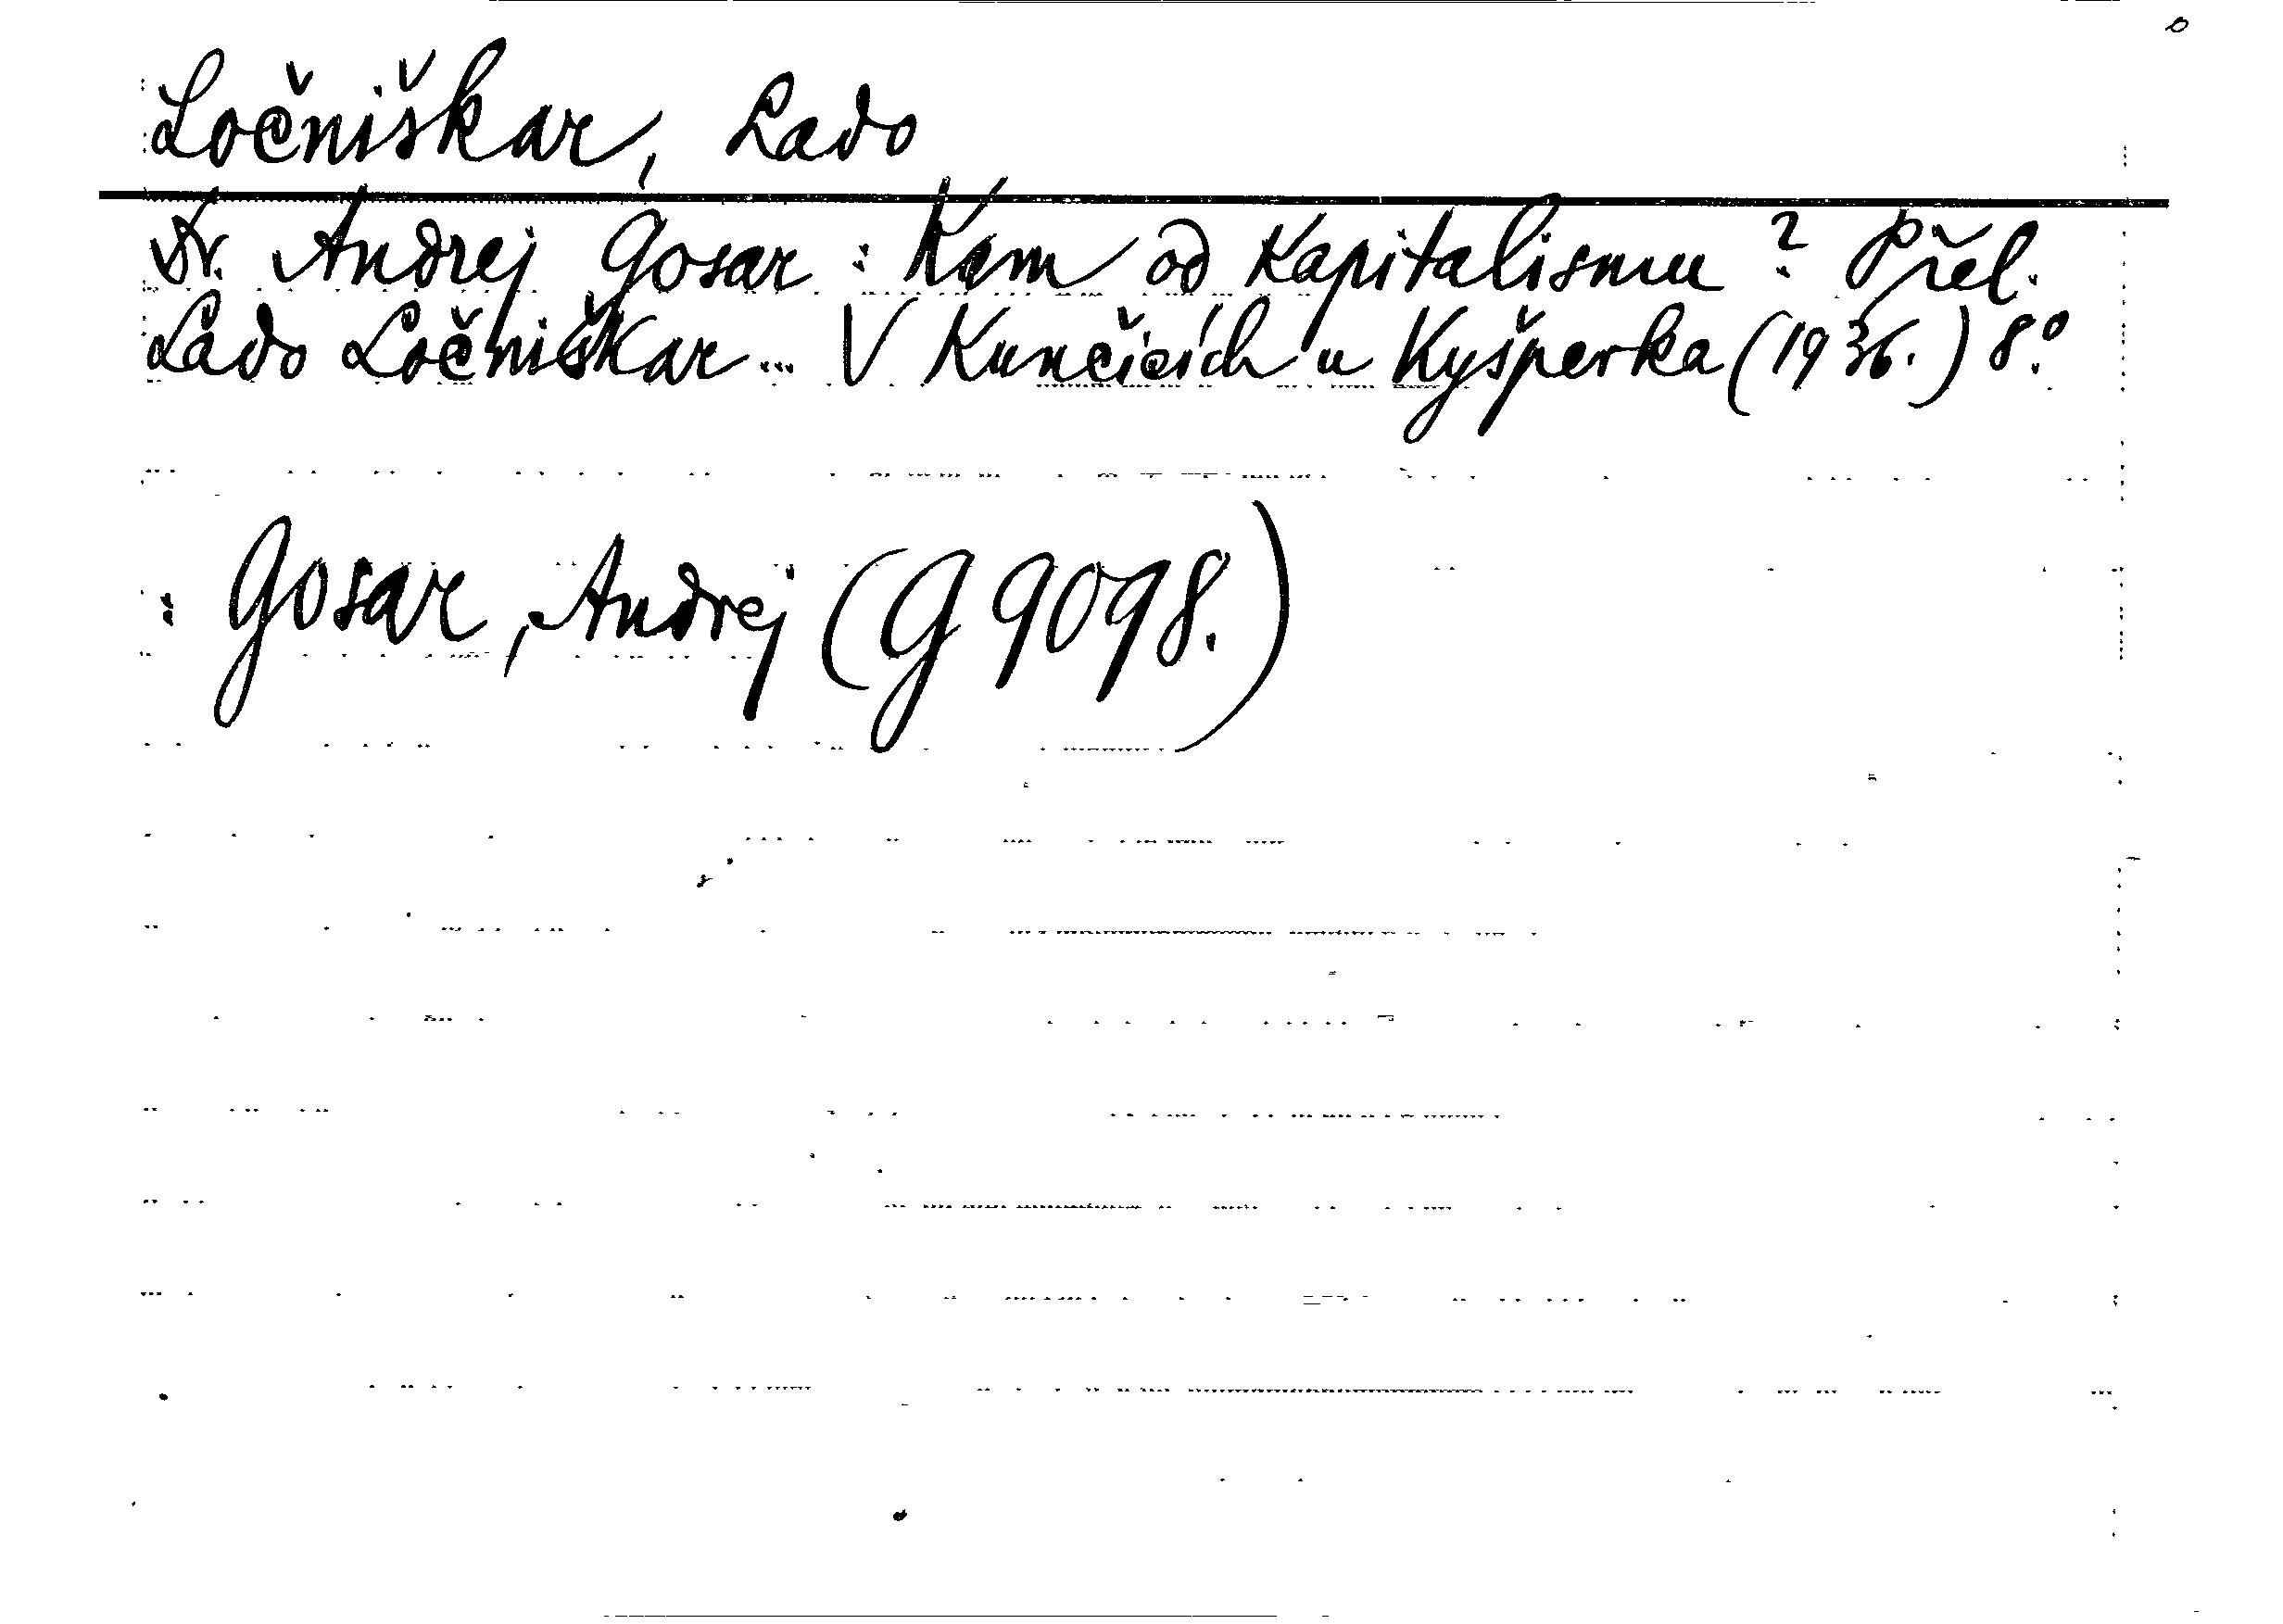 Ločniškar, Lado
Dr. Andrej Gosar : Kam od kapitalismu? Přel.
Lado Ločniškar... V Kunčicích u Kyšperka (1936.) 8.°
: Gosar, Andrej (G 9098.)